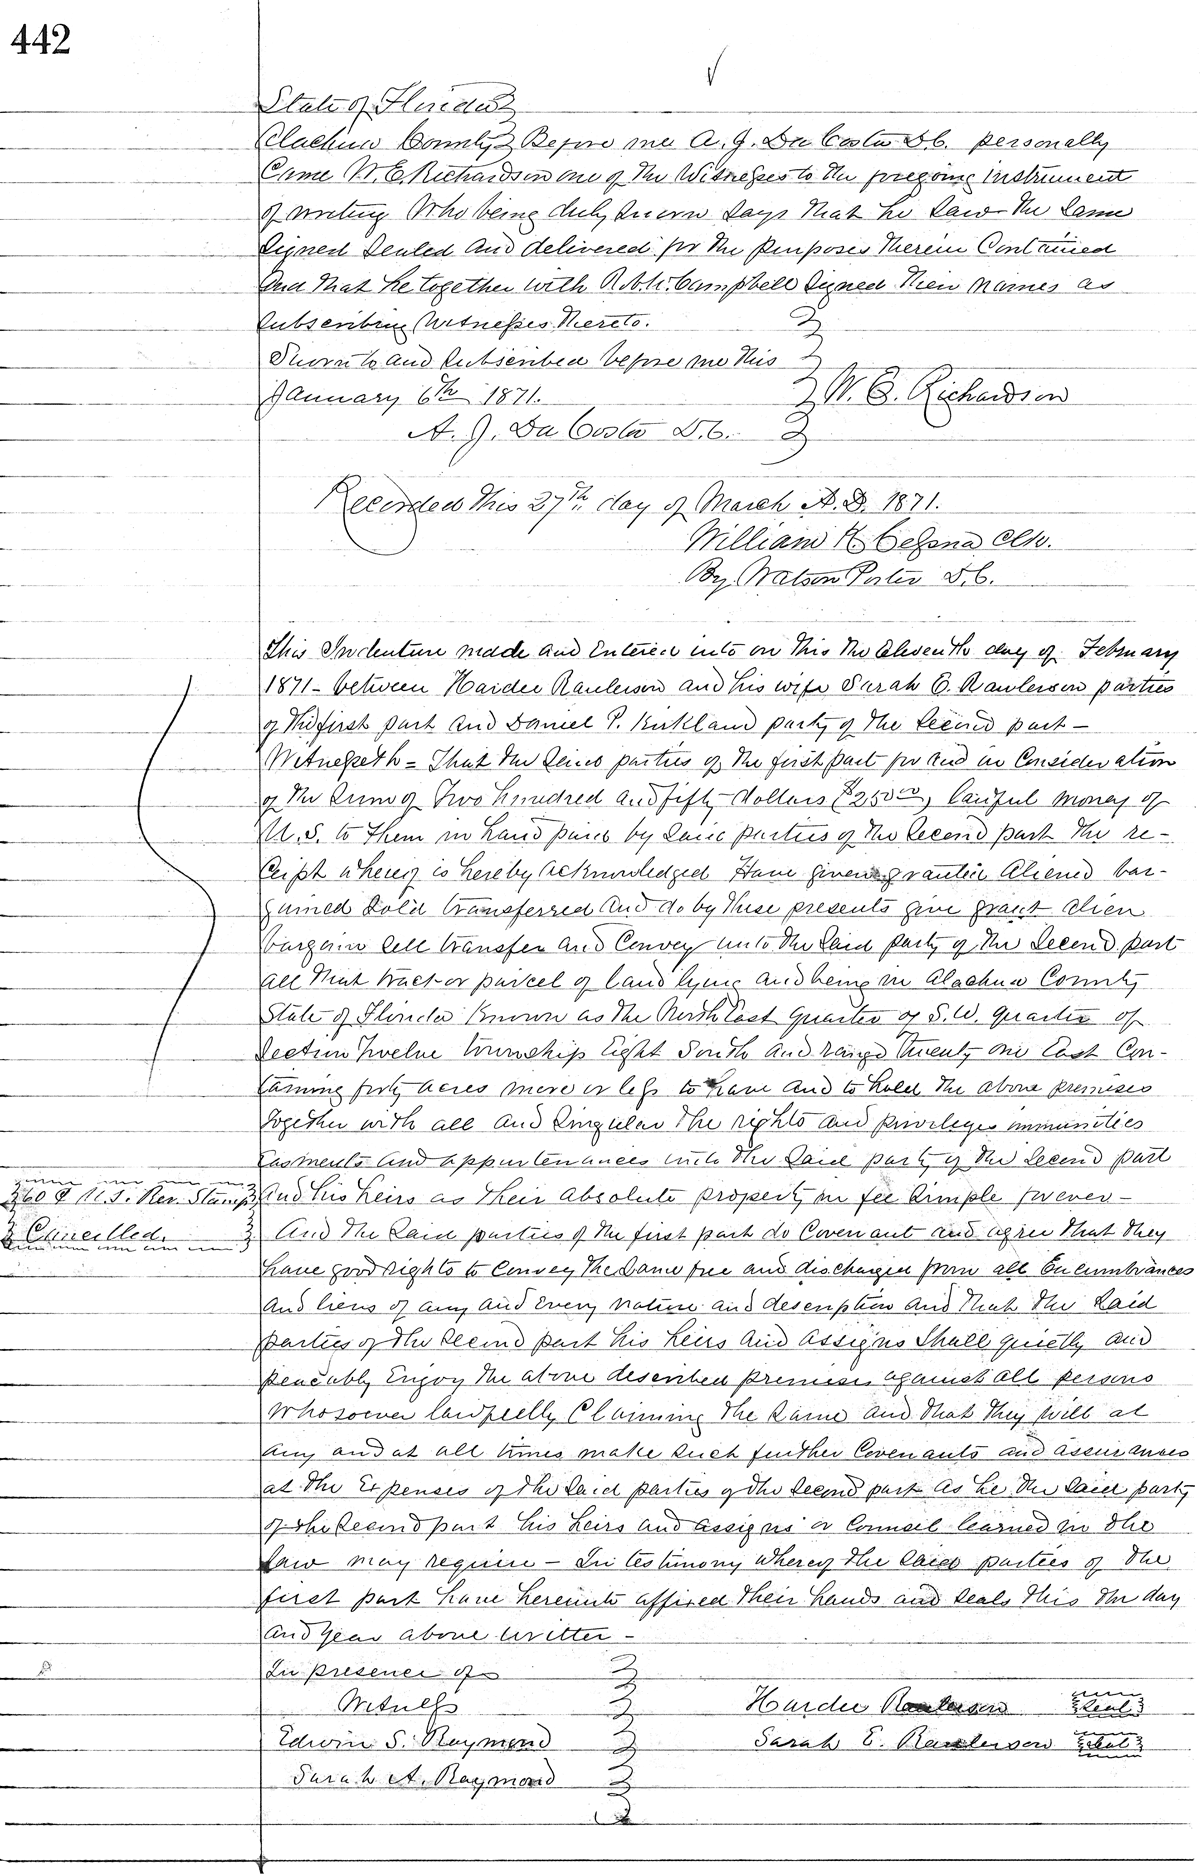 442
State of Florida
Alachua County Before me A. J. Da Costa D.C. personally
Came W. E. Richardson one of the Witnesses to the foregoing instrument
of writing Who being duly Sworn Says That he Saw the Same
Signed Sealed and delivered for the purposes Therein Contained
And That he together with Campbell Signed Their names as
Subscribing Witnesses Thereto.
Sworn to and Subscribed before me This
January 6th 1871. W. E. Richardson
A. J. Da Costa D.C.
Recorded This 27th day of March A.D. 1871.
William K. Cessna Clk.
By Watson Porter D.C.
This Indenture made and Entered into on This The Eleventh day of February
1871 - between Hardee Raulerson and his wife Sarah E. Raulerson parties
of The first part and Daniel P. Kirkland party of The Second part -
Witnesseth = That the Said parties of The first part for and in Consideration
of The Sum of Two hundred and fifty dollars ($250 00) lawful money of
U.S. to Them in hand paid by Said parties of The Second part The re-
ceipt whereof is hereby acknowledged Have given granted Aliened bar-
gained Sold transferred and do by These presents give grant alien
bargain Sell transfer and Convey unto The Said party of The Second part
All That tract or parcel of land lying and being in Alachua County
State of Florida Known as The North East quarter of S.W. quarter of
Section Twelve township Eight South and range Twenty one East Con-
taining forty acres more or less to have and to hold The above premises
together with all and Singular The rights and privileges immunities
Easments and appurtenances unto The Said party of The Second part
360 ¢ U.S. Rev. Stamp And his heirs as Their absolute property in fee Simple forever -
Cancelled. And The Said parties of The first part do Covenant and agree That They
have good rights to Convey The Same free and discharged from all Encumbrances
And liens of any and Every nature and description And That The Said
parties of The Second part his heirs and assigns Shall quietly and
peaceably Enjoy The above described premises against all persons
Whosoever lawfully Claiming The Same and That They will at
any and at all times make Such further Covenants and assurances
at The Expenses of The Said parties of The Second part as he The Said party
of The Second part his heirs and assigns or Counsel learned in The
Law may require - In testimony whereof The Said parties of The
first part have hereunto affixed Their hands and Seals This The day
And Year above written -
In presence of
Witness Hardee Raulerson Seal
Edwin S. Raymond Sarah E. Raulerson Seal
Sarah A. Raymond